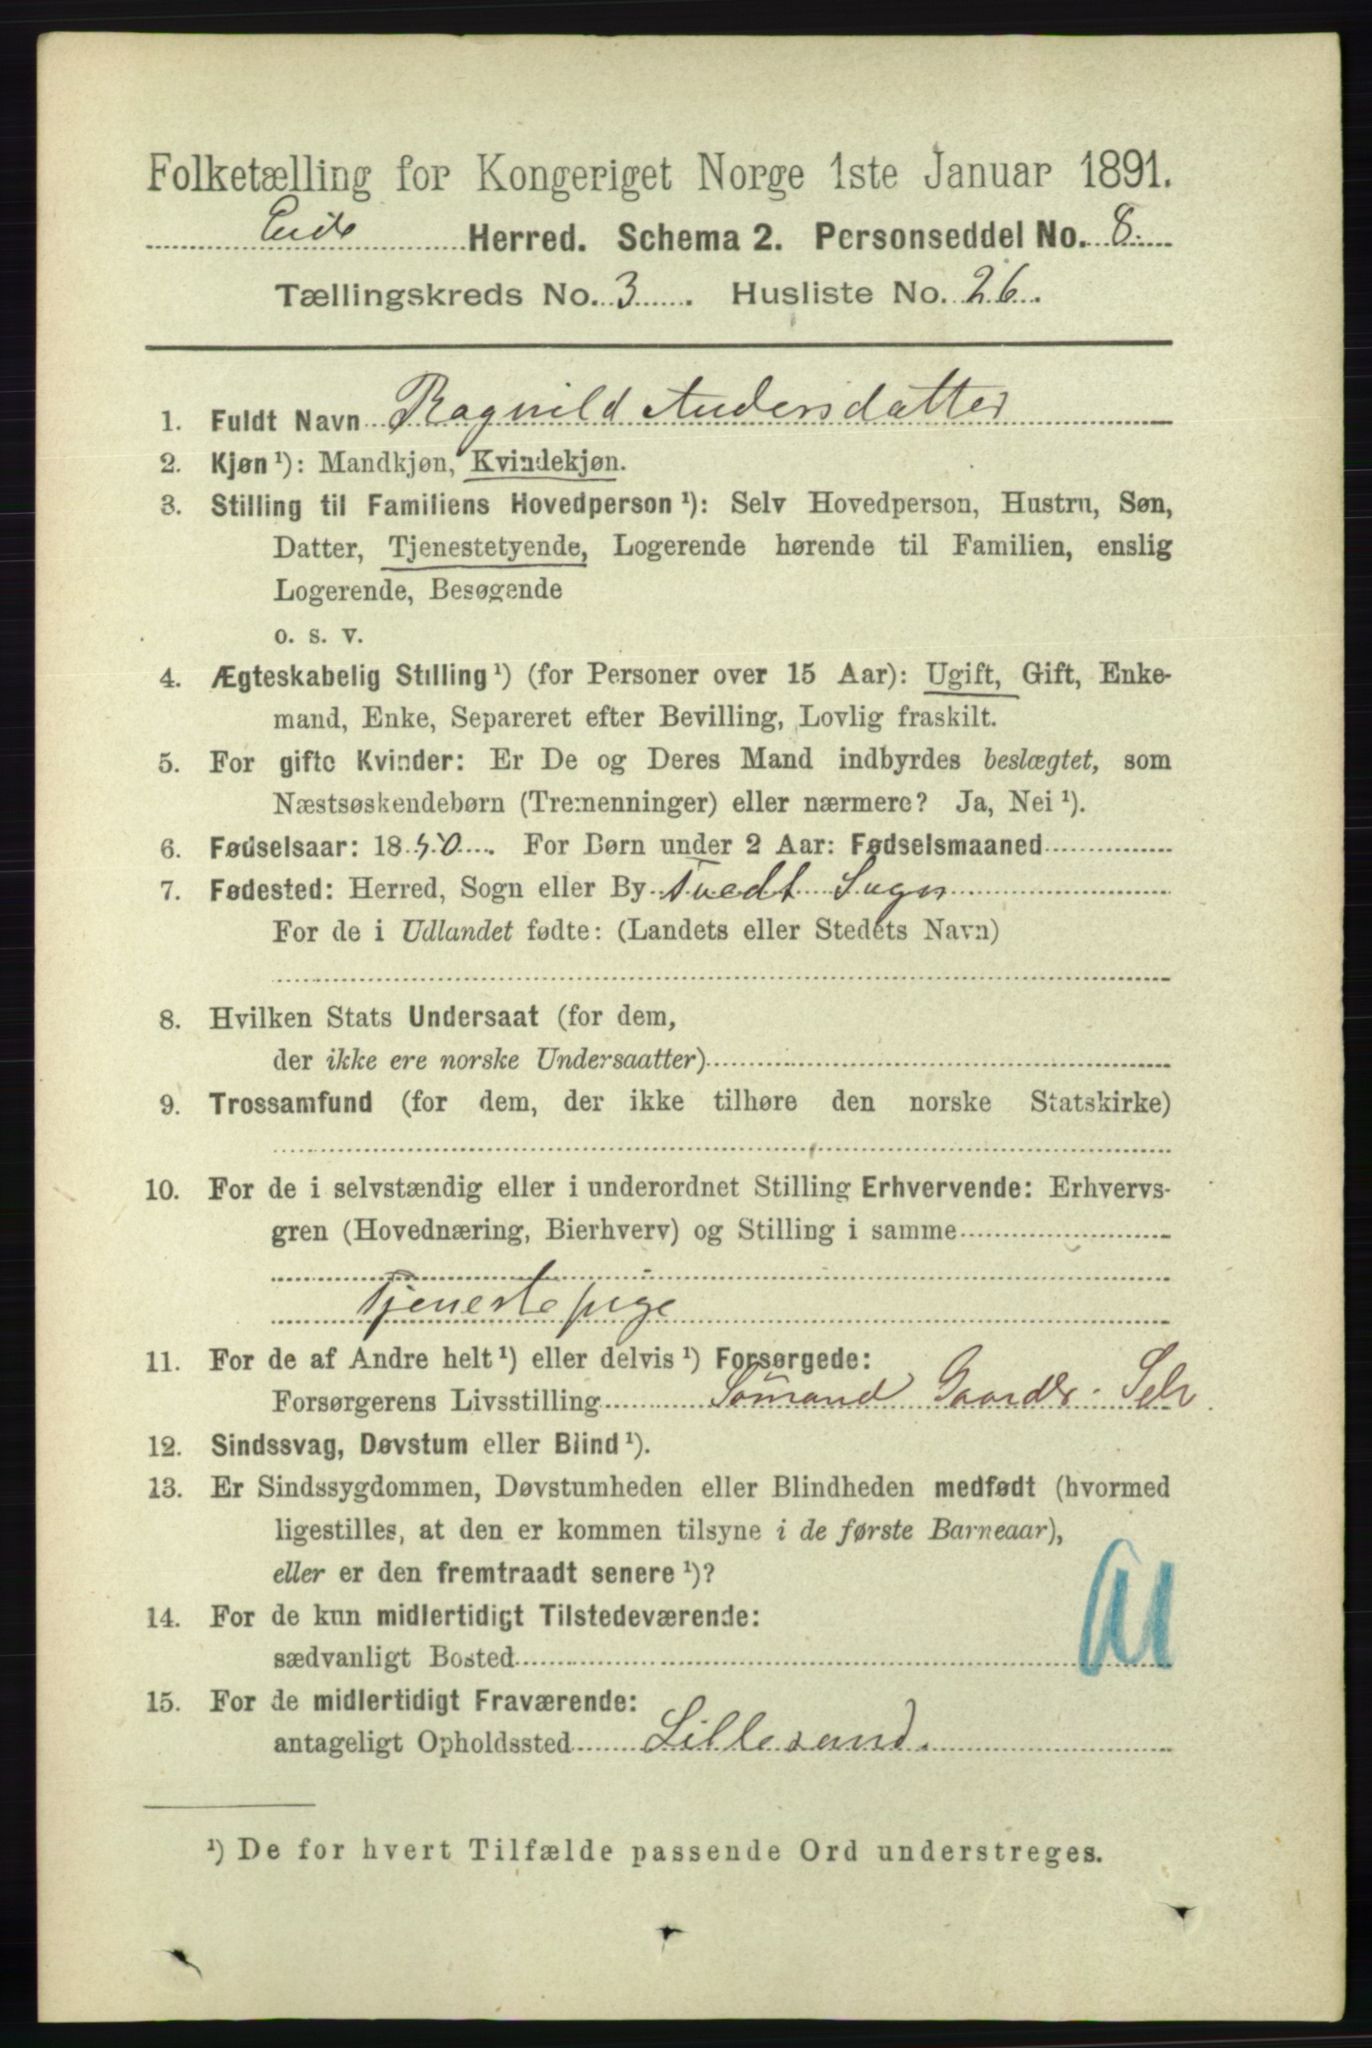 Folketælling for Kongeriget Norge 1ste Januar 1891.
Eide Herred. Schema 2. Personseddel No. 8.
Tællingskreds No. 3. Husliste No. 26.
1. Fuldt Navn Ragnild Andersdatter
2. Kjøn ¹): Mandkjøn, Kvindekjøn.
3. Stilling til Familiens Hovedperson ¹): Selv Hovedperson, Hustru, Søn,
Datter, Tjenestetyende, Logerende hørende til Familien, enslig
Logerende, Besøgende
o. s. v.
4. Ægteskabelig Stilling ¹) (for Personer over 15 Aar): Ugift, Gift, Enke-
mand, Enke, Separeret efter Bevilling, Lovlig fraskilt.
5. For gifte Kvinder: Er De og Deres Mand indbyrdes beslægtet, som
Næstsøskendebørn (Tremenninger) eller nærmere? Ja, Nei ¹).
6. Fødselsaar: 1850. For Børn under 2 Aar: Fødselsmaaned
7. Fødested: Herred, Sogn eller By Tvedt Sogn
For de i Udlandet fødte: (Landets eller Stedets Navn)
8. Hvilken Stats Undersaat (for dem,
der ikke ere norske Undersaatter)
9. Trossamfund (for dem, der ikke tilhøre den norske Statskirke)
10. For de i selvstændig eller i underordnet Stilling Erhvervende: Erhvervs-
gren (Hovednæring, Bierhverv) og Stilling i samme
Tjenestepige
11. For de af Andre helt ¹) eller delvis ¹) Forsørgede:
Forsørgerens Livsstilling Sömand Gaardbr. Selv
12. Sindssvag, Døvstum eller Blind ¹).
13. Er Sindssygdommen, Døvstumheden eller Blindheden medfødt (hvormed
ligestilles, at den er kommen tilsyne i de første Barneaar),
eller er den fremtraadt senere ¹)?
14. For de kun midlertidigt Tilstedeværende:
sædvanligt Bosted
15. For de midlertidigt Fraværende:
antageligt Opholdssted Lillesand.
¹) De for hvert Tilfælde passende Ord understreges.